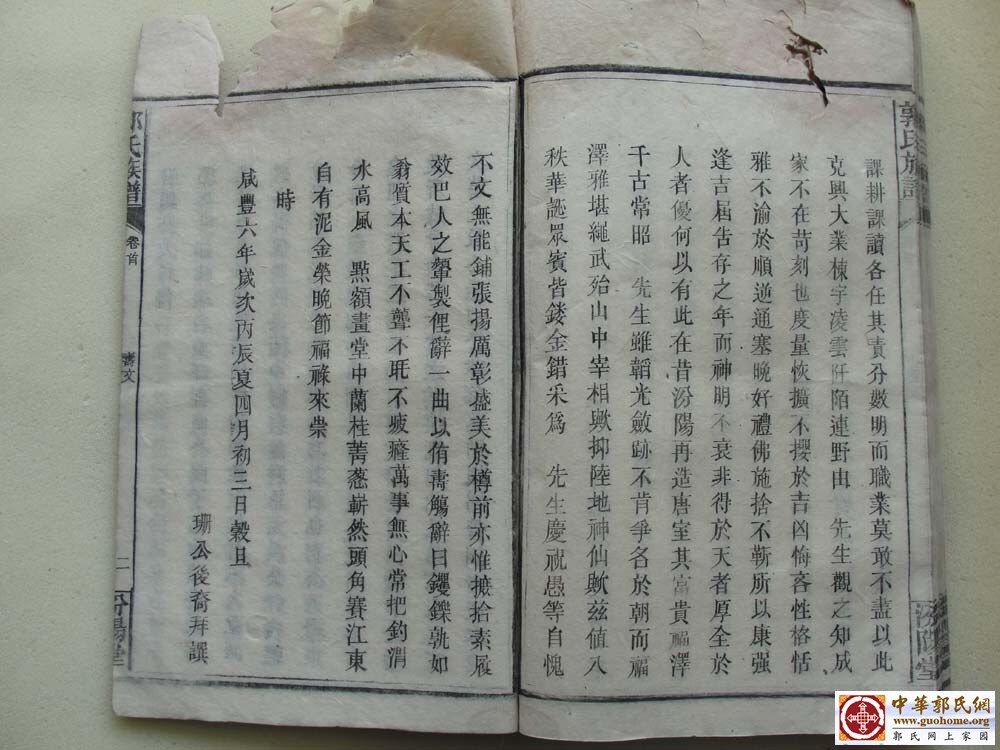 郭氏族譜
汾陽堂
課耕課讀各任其責分數明而職業莫敢不盡以此
克興大業棟宇凌雲阡陌連野由 先生觀之知成
家不在苛刻也度量恢擴不攖於吉凶悔吝性格恬
雅不渝於順逆通塞晚好禮佛施捨不靳所以康强
逢吉屆吿存之年而神明不衰非得於天者厚全於
人者優何以有此在昔汾陽再造唐室其富貴福澤
千古常昭 先生雖韜光斂跡不肯爭名於朝而福
澤雅堪繩武殆山中宰相歟抑陸地神仙歟茲值八
秩華誕眾賓皆鏤金錯采為 先生慶祝愚等自愧
不文無能鋪張揚厲彰盛美於樽前亦惟摭拾素履
效巴人之顰製俚辭一曲以侑壽觴辭曰钁鑠孰如
翁質本天工不聾不眊不疲癃萬事無心常把釣渭
水高風 點額畫堂中蘭桂菁蔥嶄然頭角賽江東
自有泥金榮晚節福祿來崇
時
咸豐六年歲次丙辰夏四月初三日穀旦
珊公後裔拜譔
郭氏族譜
卷首
壽文
二
汾陽堂
中華郭氏網
www.guohome.org
郭氏網上家園